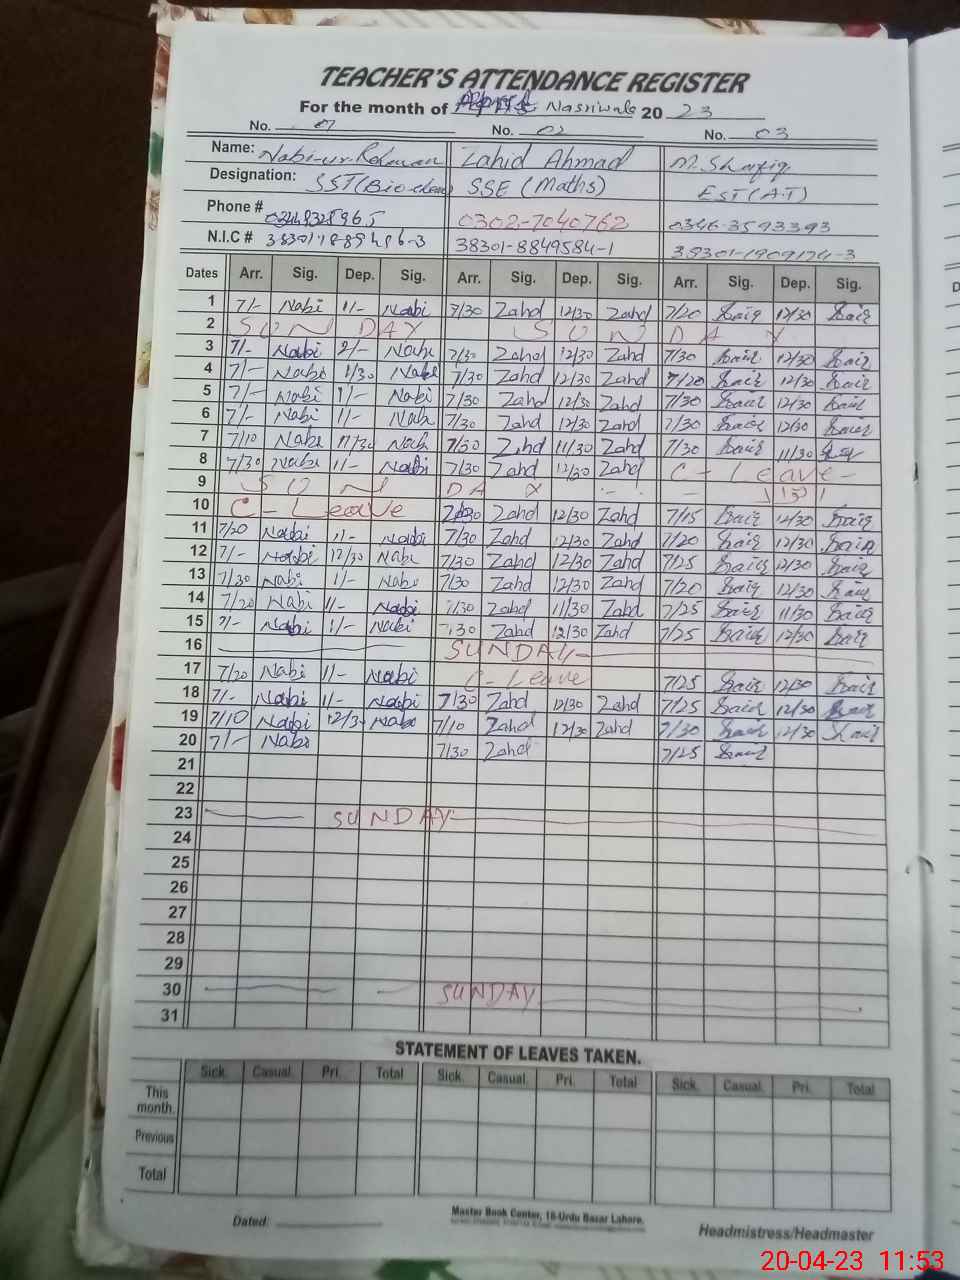 TEACHER'S ATTENDANCE REGISTER
For the month of Nasriwala 20 23
No. 01 No. 02 No. 03
Name: Nabi-ur-Rehman Zahid Ahmad M. Shafiq
Designation: SST (Bio-chem) SSE (Maths) EST (A.T)
Phone # 0302-7040762 0346-3593393
N.I.C # 38301-8849584-1
Dates Arr. Sig. Dep. Sig. Arr. Sig. Dep. Sig. Arr. Sig. Dep. Sig.
1 7/- Nabi 1/- Nabi 7/30 Zahd 12/30 Zahd 7/20 12/30
2 SUNDAY SUNDAY
3 7/- Nabi 2/- Nabi 7/30 Zahd 12/30 Zahd 7/30 12/30
4 7/- Nabi 1/30 Nabi 7/30 Zahd 12/30 Zahd 7/20 12/30
5 7/- Nabi 1/- Nabi 7/30 Zahd 12/30 Zahd 7/30 12/30
6 7/- Nabi 1/- Nabi 7/30 Zahd 12/30 Zahd 7/30 12/30
7 7/10 Nabi 11/30 Nabi 7/30 Zahd 11/30 Zahd 7/30 11/30
8 7/30 Nabi 1/- Nabi 7/30 Zahd 12/30 Zahd C-Leave-
9 SUN DAY
10 C-Leave Zahd 12/30 Zahd 7/15 12/30
11 7/20 Nabi 1/- Nabi 7/30 Zahd 12/30 Zahd 7/20 12/30
12 7/- Nabi 12/30 Nabi 7/30 Zahd 12/30 Zahd 7/25 12/30
13 7/30 Nabi 1/- Nabi 7/30 Zahd 12/30 Zahd 7/20 12/30
14 7/20 Nabi 11/- Nabi 7/30 Zahd 11/30 Zahd 7/25 11/30
15 7/- Nabi 1/- Nabi 7:30 Zahd 12/30 Zahd 7/25 12/30
16 SUNDAY
17 7/20 Nabi 1/- Nabi C-Leave 7/25 12/30
18 7/- Nabi 1/- Nabi 7/30 Zahd 12/30 Zahd 7/25 12/30
19 7/10 Nabi 12/30 Nabi 7/10 Zahd 12/30 Zahd 7/30 12/30
20 7/- Nabi 7/30 Zahd 7/25
21
22
23 SUNDAY
24
25
26
27
28
29
30 SUNDAY
31
STATEMENT OF LEAVES TAKEN.
Sick. Casual. Pri. Total Sick. Casual. Pri. Total Sick. Casual. Pri. Total
This month.
Previous
Total
Dated: Master Book Center, 18-Urdu Bazar Lahore. Headmistress/Headmaster
20-04-23 11:53